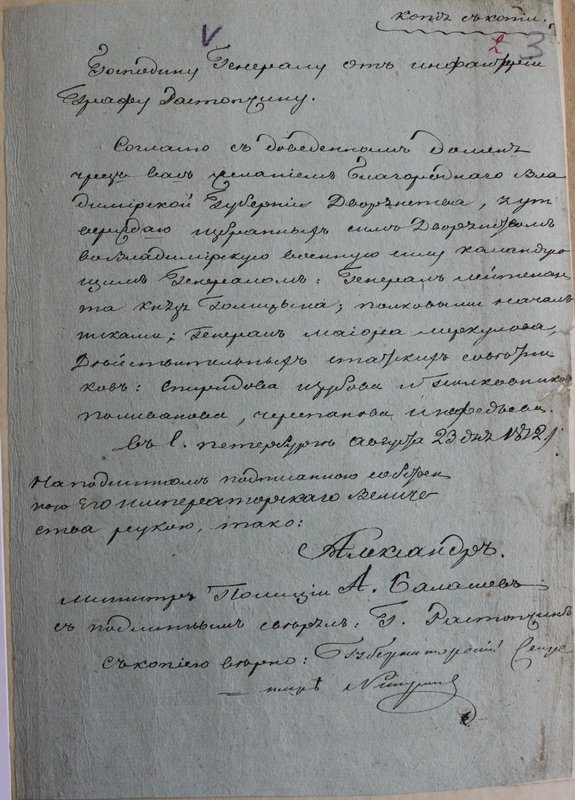 копiя съ копiи.
2 3
Господину Генералу отъ инфантерiи
Графу Растопчину.
Согласно съ доведеннымъ до меня
чрезъ васъ желанiемъ Благороднаго Вла
димiрской Губернiи Дворянства, я ут
верждаю избранныхъ симъ Дворянствомъ
во Владимiрскую военную силу командую
щимъ Генераломъ: Генералъ лейтенан
та князя Голицына; полковыми началь
никами; Генералъ маiора меркулова,
Действительныхъ статскихъ советни
ковъ: спиридова и зубова и полковниковъ
поливанова, черепанова и нефедьева.
въ С. петербургъ августа 23 дня 1812 г.
На подлинномъ подписанною собствен
ною ЕГО императорскаго Величе
ства рукою, тако:
Александръ.
министръ Полицiи А. Балашевъ
съ подлиннымъ сверялъ: Г. Растопчинъ
съ копiею верно: Губернаторскiй Секре
тарь